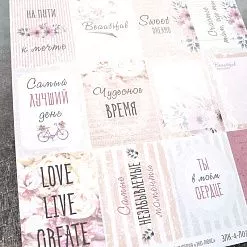 НА ПУТИ
к мечте
Beautiful
Sweet
Самый
ЛУЧШИЙ
день
Чудесное
ВРЕМЯ
LOVE
LIVE
CREATE
Самые
НЕЗАБЫВАЕМЫЕ
моменты
ТЫ
в моём
СЕРДЦЕ